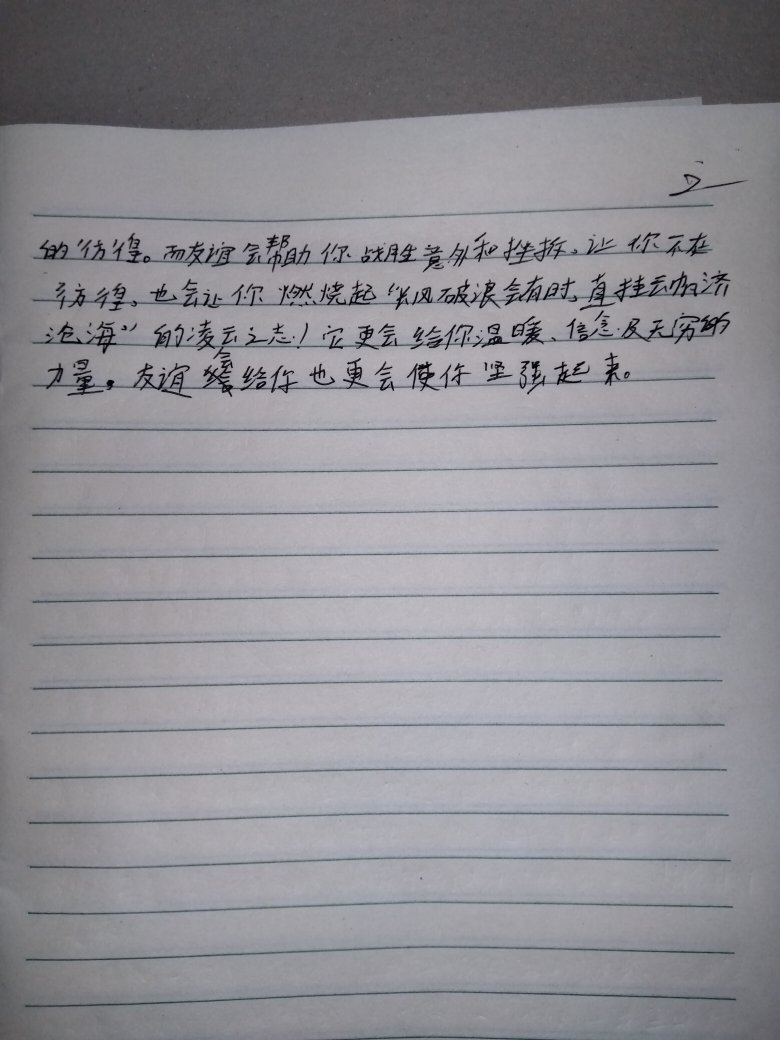 的彷徨。而友谊会帮助你战胜意外和挫折,让你不在
彷徨,也会让你燃烧起“长风破浪会有时,直挂云帆济
沧海”的凌云之志!它更会给你温暖、信念及无穷的
力量。友谊会给你也更会使你坚强起来。